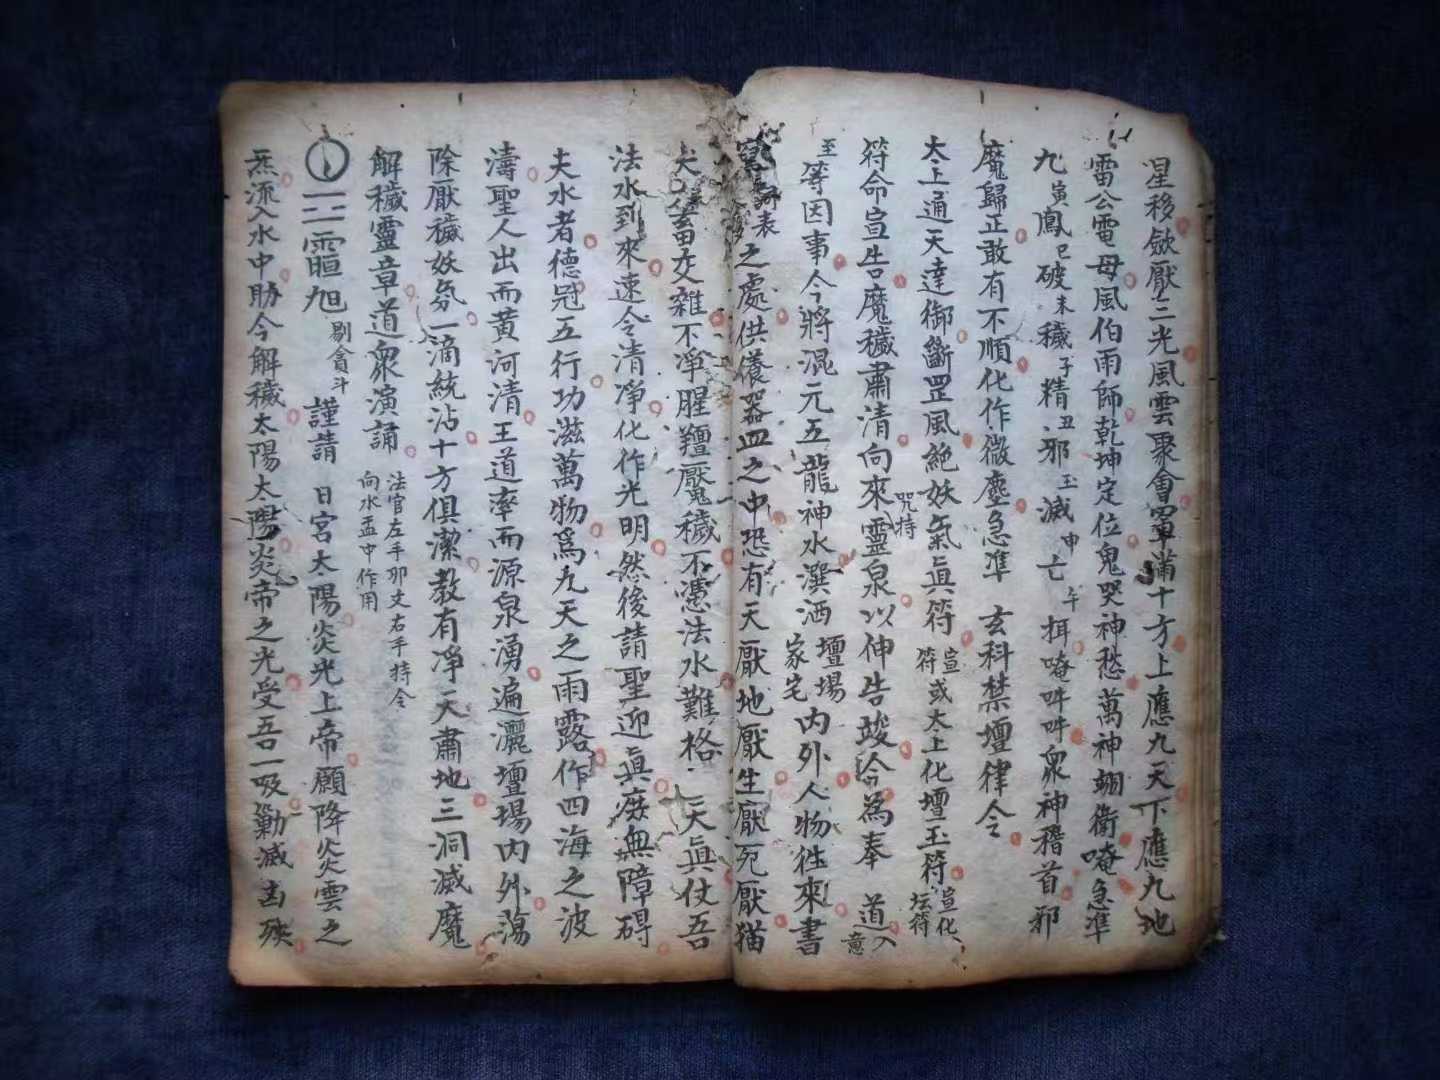 星移歛厭三光風雲聚會罩滿十方上應九天下應九地
雷公電母風伯雨師乾坤定位鬼哭神愁萬神翊衛唵急準
九寅鳳巳破未穢子精丑邪玉滅申亡午揖唵吽吽眾神稽首邪
魔歸正敢有不順化作微塵急準 玄科禁壇律令
太上通天達御斷罡風絶妖氣真符宣符或太上化壇玉符宣化坛符
符命宣告魔穢肅清向來咒特靈泉以伸告竣今為奉 道入意
至等因事今將混元五龍神水潠洒壇場家宅内外人物徃來書
之處供養器皿之中恐有天厭地厭生厭死厭猫
犬六畜交雜不淨腥羶魘穢不憑法水難格三天真仗吾
法水到來速令清淨化作光明然後請聖迎真癈無障碍
夫水者德冠五行功滋萬物為九天之雨露作四海之波
濤聖人出而黄河清王道率而源泉湧遍灑壇場内外蕩
除厭穢妖氛一滴統沾十方俱潔教有淨天肅地三洞滅魔
解穢靈章道眾演誦 法官左手卯文右手持令向水盂中作用
霐晅旭剔食斗 謹請 日宮太陽炎光上帝願降炎雲之
炁流入水中助今解穢太陽太陽炎帝之光受吾一吸勦滅凶殃